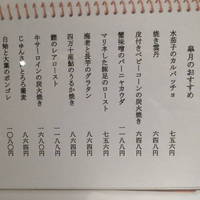 皐月のおすすめ
水茄子のカルパッチョ 七五六
焼き雲丹
皮付きベビーコーンの炭火焼き 七五六
蟹味噌のバーニャカウダ 一一八八
マリネした豚足のロースト 七五六
海老と長芋のグラタン 八六四
四万十産鮎のうるか焼き 一一八八
鰹のレアロースト
牛サーロインの炭火焼き
じゅんさいとろろ蕎麦 八六四
白蛤と大葉のボンゴレ 一〇八〇